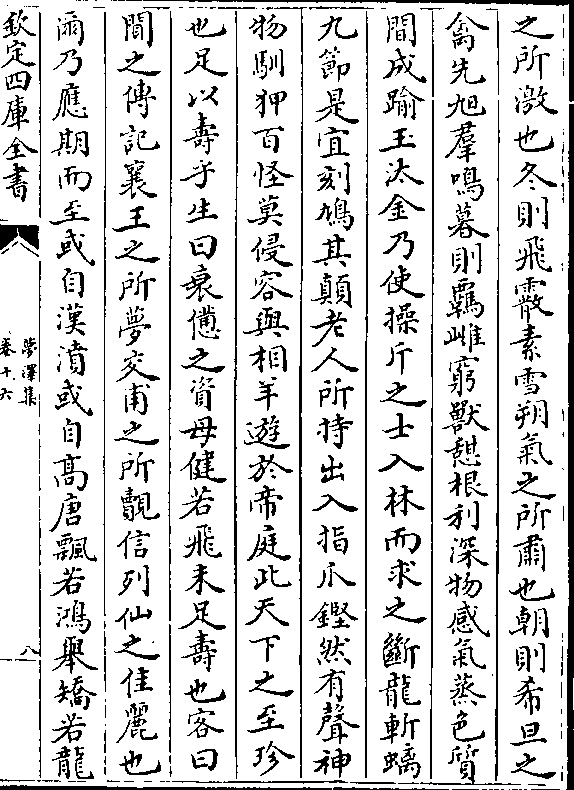 之所激也冬則飛霰素雪朔氣之所肅也朝則希旦之
禽先旭羣鳴暮則羈雌窮獸憇根利深物感氣蒸色質
間成踰玉汰金乃使操斤之士入林而求之斷龍斬螭
九節是宜刻鳩其顛老人所持出入指爪鏗然有聲神
物馴狎百怪莫侵容與相羊遊於帝庭此天下之至珍
也足以壽乎生曰衰憊之資毋健若飛未足壽也客曰
聞之傳記襄王之所夢交甫之所覯信列仙之佳麗也
爾乃應期而至或自漢濆或自髙唐飄若鴻舉矯若龍
欽定四庫全書
夢澤集
卷十六
八